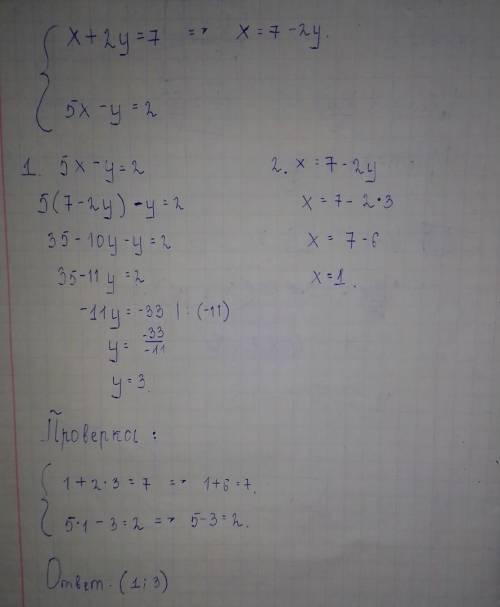 x + 2y = 7 => x = 7 - 2y.
5x - y = 2
1. 5x - y = 2
5(7 - 2y) - y = 2
35 - 10y - y = 2
35 - 11y = 2
-11y = -33 | : (-11)
y = -33/-11
y = 3.
2. x = 7 - 2y
x = 7 - 2·3
x = 7 - 6
x = 1.
Проверка:
1 + 2·3 = 7 => 1 + 6 = 7.
5·1 - 3 = 2 => 5 - 3 = 2.
Ответ. (1; 3)